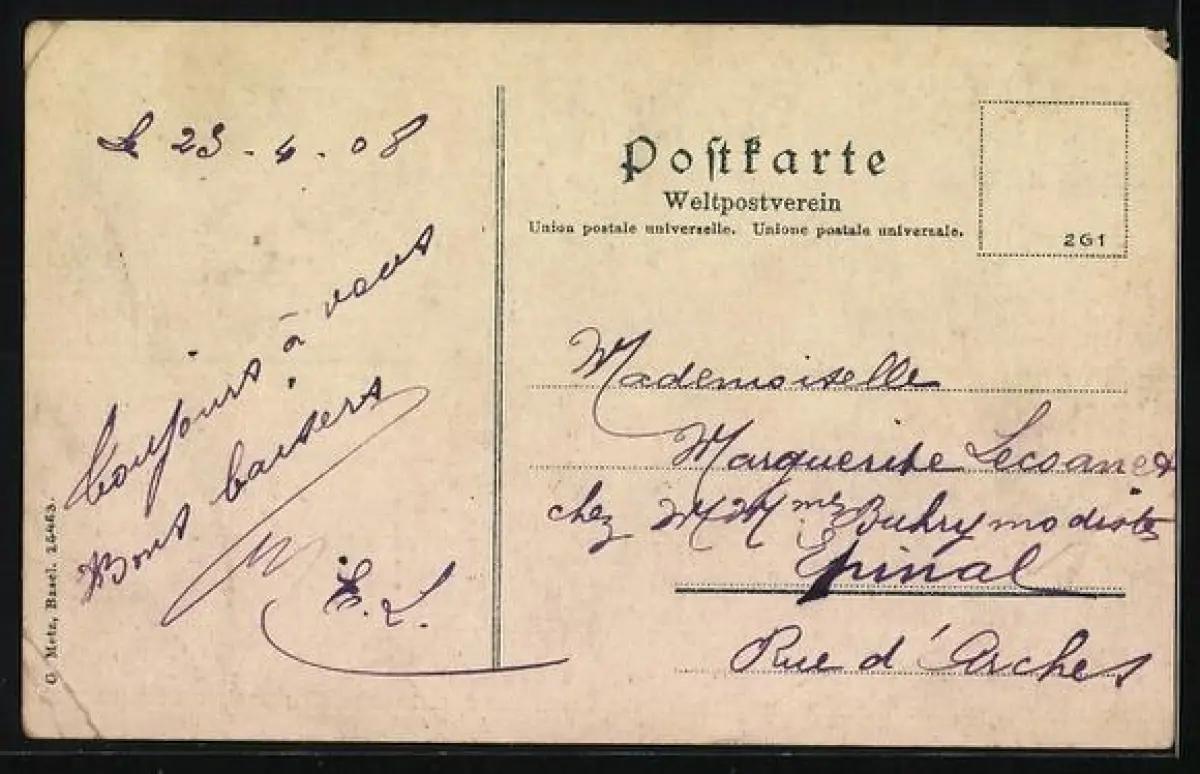 Le 23-4-08
Toujours à vous
Bons baisers
E. L.
G Metz, Basel. 25463.
Postkarte
Weltpostverein
Union postale universelle. Unione postale universale.
2G1
Mademoiselle
Marguerite Lecoanet
chez M M<sup>mes</sup> Buhry modiste
Epinal
Rue d'Arches